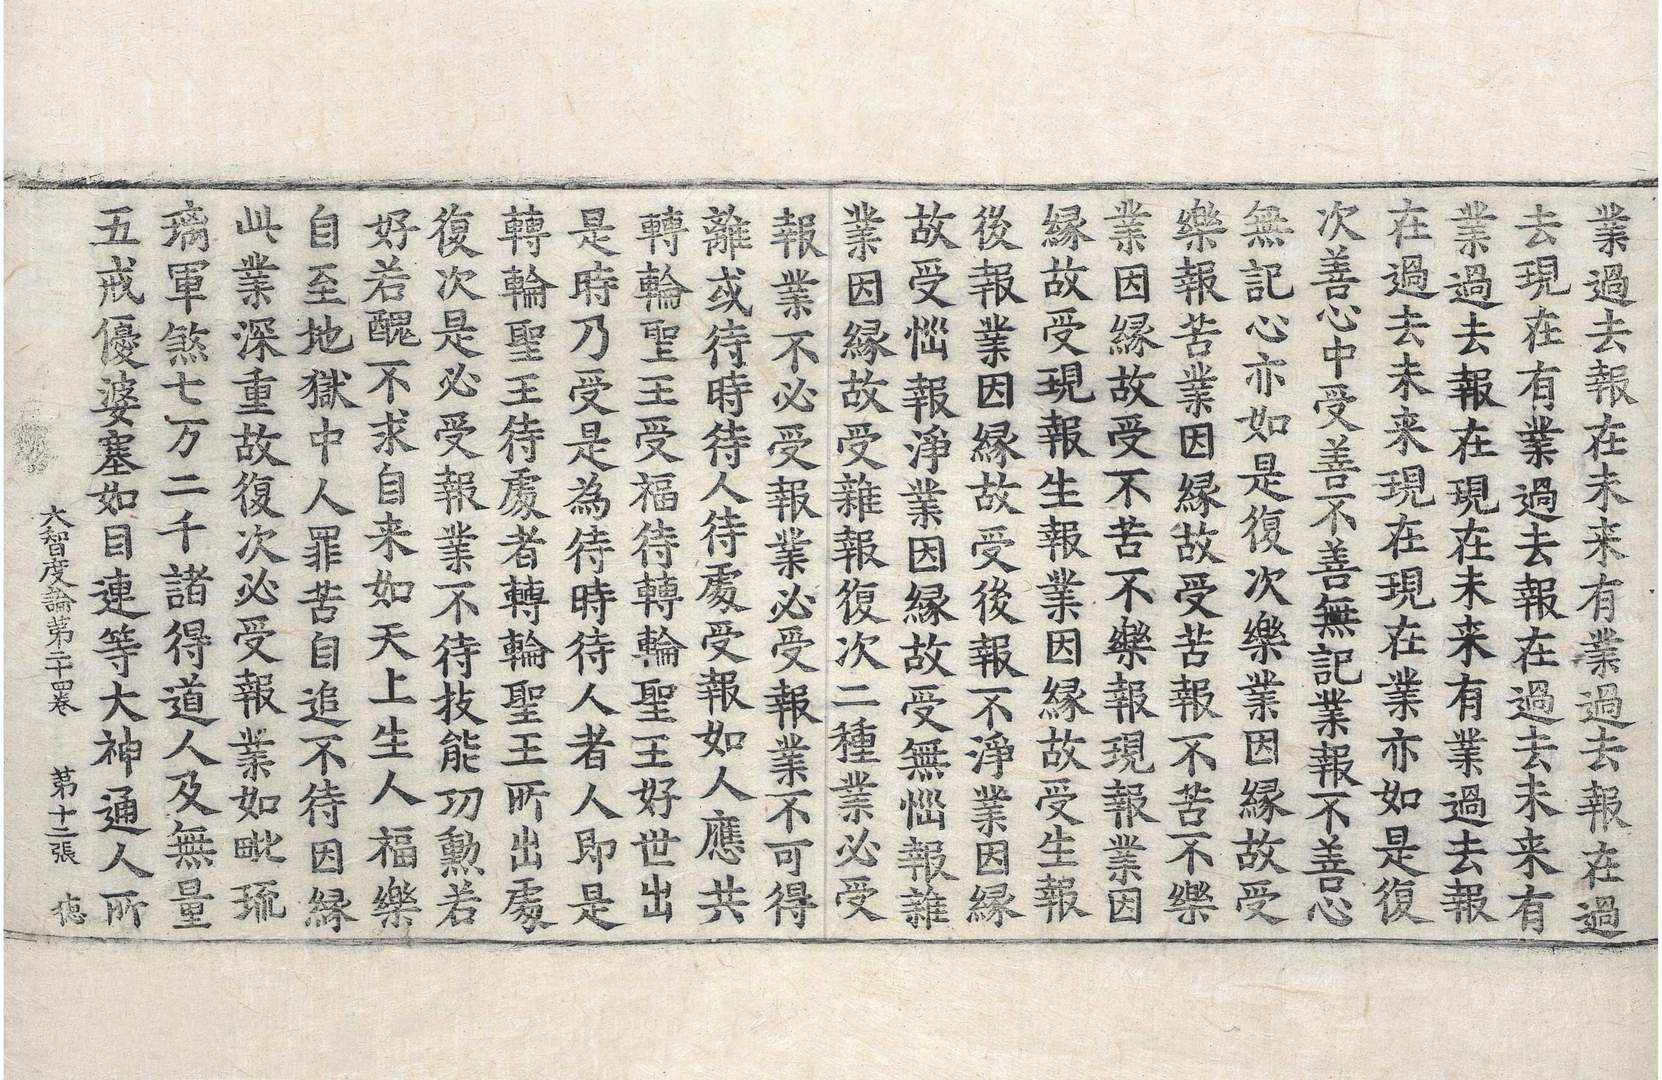 業過去報在未来有業過去報在過
去現在有業過去報在過去未来有
業過去報在現在未来有業過去報
在過去未来現在現在業亦如是復
次善心中受善不善無記業報不善心
無記心亦如是復次樂業因縁故受
樂報苦業因縁故受苦報不苦不樂
業因縁故受不苦不樂報現報業因
縁故受現報生報業因縁故受生報
後報業因縁故受後報不淨業因縁
故受惱報淨業因縁故受無惱報雜
業因縁故受雜報復次二種業必受
報業不必受報業必受報業不可得
離或待時待人待處受報如人應共
轉輪聖王受福待轉輪聖王好世出
是時乃受是為待時待人者人即是
轉輪聖王待處者轉輪聖王所出處
復次是必受報業不待技能功勲若
好若醜不求自来如天上生人福樂
自至地獄中人罪苦自追不待因縁
此業深重故復次必受報業如毗琉
璃軍煞七万二千諸得道人及無量
五戒優婆塞如目連等大神通人所
大智度論第二十四卷 第十二張 德